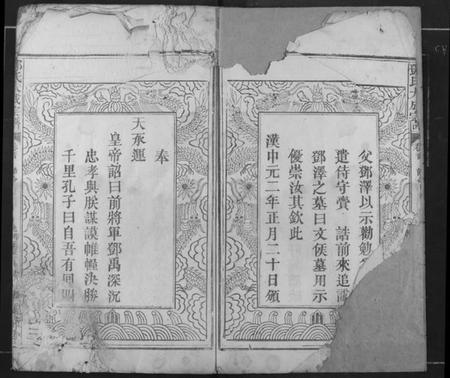 奉
天承運
皇帝詔曰前將軍鄧禹深沉
忠孝與朕謀謨帷幄決勝
千里孔子曰自吾有回
父鄧澤以示勸勉
遣侍守賫 誥前來追
鄧澤之墓曰文侯墓用示
優崇汝其欽此
漢中元二年正月二十日頒